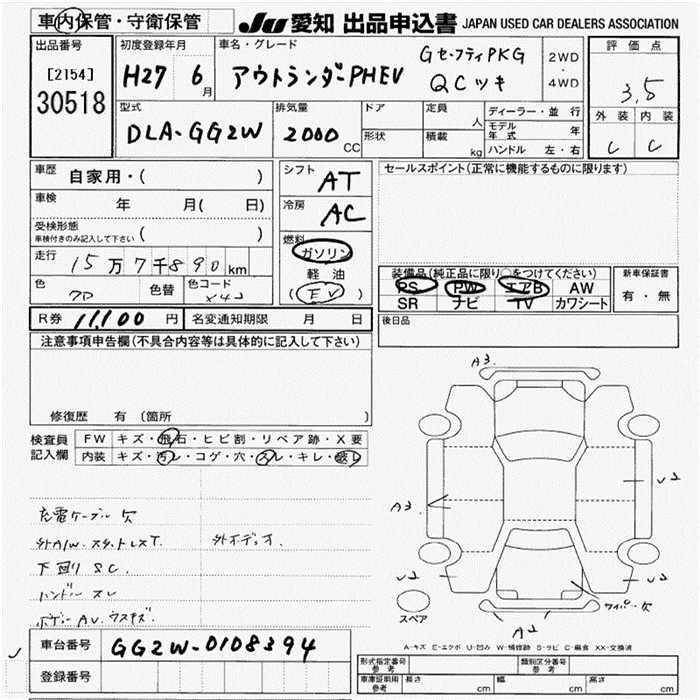 車内保管・守衛保管
JU 愛知 出品申込書 JAPAN USED CAR DEALERS ASSOCIATION
出品番号
[2154]
30518
初度登録年月
H27 6月
車名・グレード
アウトランダーPHEV
GセーフティPKG
QCツキ
2WD
・
4WD
評価点
3.5
外装 内装
C C
型式
DLA-GG2W
排気量
2000 CC
ドア
形状
定員 人
積載 kg
ディーラー・並行
モデル年式 年
ハンドル 左・右
車歴 自家用・( )
車検 年 月( 日)
受検形態
車検付きのみ記入して下さい ( )
走行 15万7千890km
色
色替
色コード
X42
シフト AT
冷房 AC
燃料
ガソリン
軽油
(EV)
セールスポイント(正常に機能するものに限ります)
装備品(純正品に限り○をつけてください)
PS PW エアB AW
SR ナビ TV カワシート
新車保証書
有・無
後日品
R券 11,100円 名変通知期限 月 日
注意事項申告欄(不具合内容等は具体的に記入して下さい)
修復歴 有 (箇所 )
検査員記入欄
FW キズ・飛石・ヒビ割・リペア跡・X要
内装 キズ・汚レ・コゲ・穴・スレ・キレ・破レ
充電ケーブル欠
外A/W. スタットレスT. 外オーディオ.
下回りSC.
ハンドルスレ
ボデーAU. ウスキズ.
A3
A3
U2
U2
U2
A2
ワイパー欠
スペア
A-キズ E-エクボ U-凹み W-補修跡 S-サビ C-腐食 XX-交換済
車台番号 GG2W-0108394
登録番号
形式指定番号 参考
類別区分番号 参考
車庫証明用 参考 長さ cm 幅 cm 高さ cm